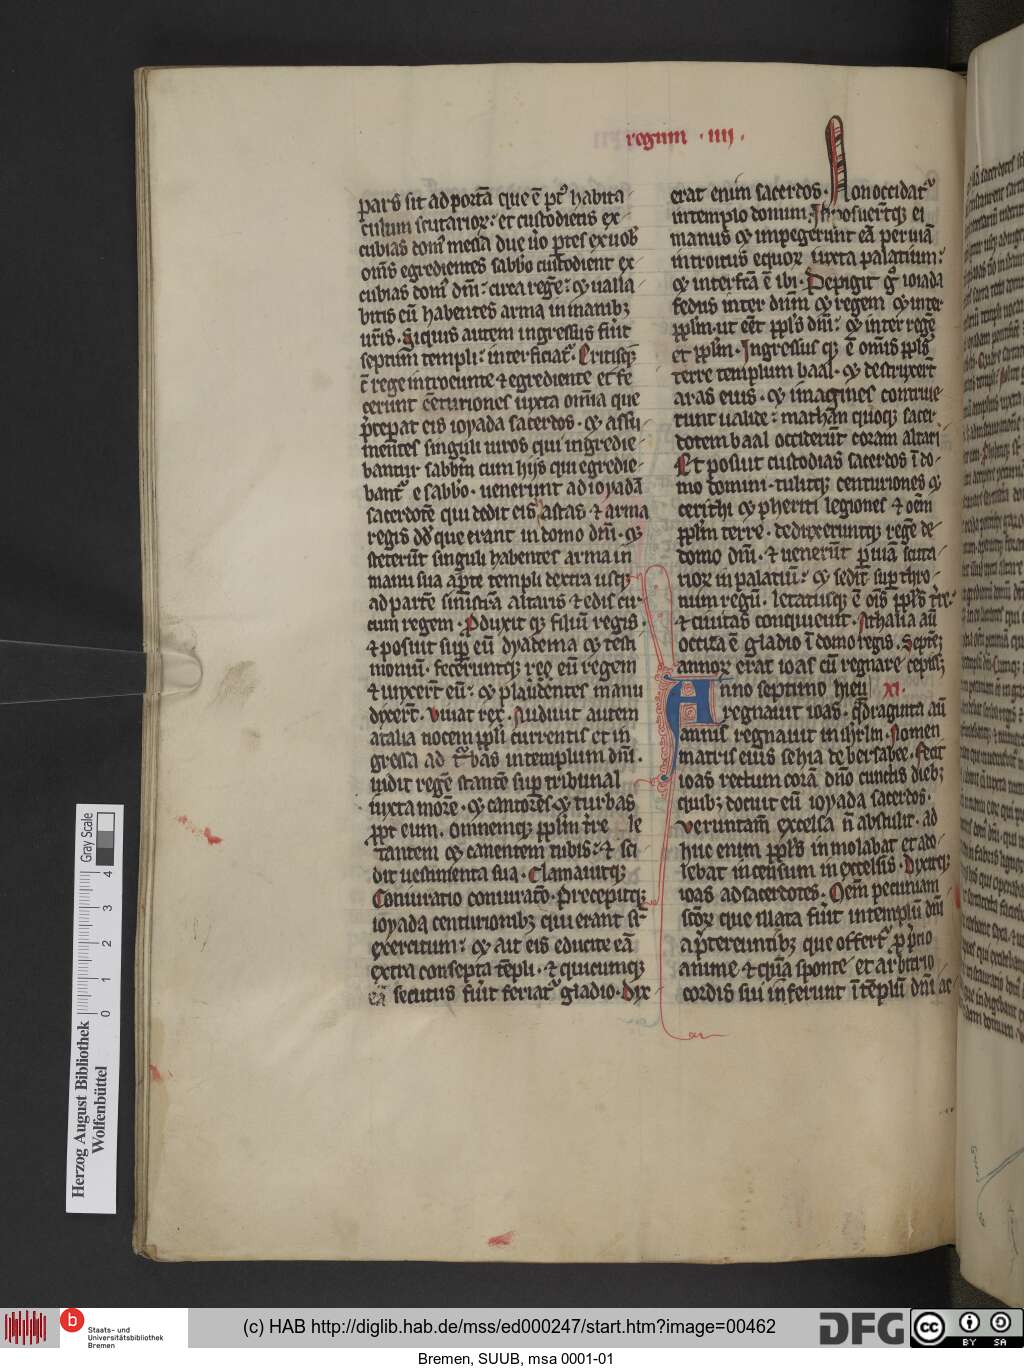 regum · IIII ·
pars sit ad portā que ē pt᷒ habita
culum scutarioꝝ: et custodietis ex
cubias dom᷒ messa due ũo ꝑtes ex uob᷒
om̄s egredientes sabb̄o custodient ex
cubias dom᷒ dn̄i: circa regē: ⁊ ualla
bitis eū habentes arma in manibꝫ
ur̄is. Siquis autem ingressus fu̇it
septum templi: interficiat᷑. Eritisqꝫ
c̄ rege introeunte ⁊ egrediente et fe
cerunt cēturiones iuxta om̄ia que
p̄ceꝑat eis ioyada sacerdos. ⁊ assu
mentes singuli uiros qui ingredie
bantur sabb̄m cum hijs qui egredie
bant᷑ e sabb̄o. uenerunt ad ioyadā
sacerdotē qui dedit eis astas ⁊ arma
regis dd̄ que erant in domo dn̄i. ⁊
steter̄t singuli habentes arma in
manu sua a ꝑte templi dextra usqꝫ
ad partē sinistrā altaris ⁊ edis cir
cum regem. Pduxit qꝫ filiū regis
⁊ posuit suꝑ eū dyadema ⁊ testi
moniū. feceruntqꝫ regē eū regem
⁊ unxer̄t eū: ⁊ plaudentes manu
dixer̄t. Uiuat rex. Audiuit autem
atalia uocem ppl̄i currentis et in
gressa ad t᷑bas in templum dn̄i.
uidit regē stantē suꝑ tribunal
iuxta morē. ⁊ cantores ⁊ turbas
ꝓpt eum. omnemqꝫ ppl̄m t̄re le
tantem ⁊ canentem tubis: ⁊ sci
dit uestimenta sua. Clamauitqꝫ
Coniuratio coniuratō. Precepitqꝫ
ioyada centurionibꝫ qui erant sr̄
exercitum: ⁊ ait eis educite eā
extra consepta tēpli. ⁊ quicumqꝫ
eā secutus fu̇it feriat᷑ gladio. Dix
erat enim sacerdos. Non occidat᷑
in templo domini. Inposuer̄tqꝫ ei
manus ⁊ impegerunt eā per uiā
introitus equoꝝ iuxta palatium:
⁊ interfc̄a ē ibi. Pepigit g̊ ioiada
fedus inter dn̄m ⁊ regem ⁊ inter
ppl̄m. ut eēt ppl̄s dn̄i: ⁊ inter regē
et ppl̄m. Ingressus qꝫ ē om̄is ppl̄s
terre templum baal. ⁊ destruxer̄t
aras eius. ⁊ imagines contriue
runt ualide: mathan quoqꝫ sacer
dotem baal occider̄t coram altari
Et posuit custodias sacerdos ī do
mo domini. tulitqꝫ centuriones ⁊
cerithi ⁊ pheriti legiones ⁊ oēm
ppl̄m terre. deduxeruntqꝫ regē de
domo dn̄i. ⁊ uener̄t ꝑ uiā scuta
rioꝝ in palatiū: ⁊ sedit suꝑ thro
num regū. letatusqꝫ ē om̄is ppl̄s t̄re.
⁊ ciuitas conquieuit. Athalia aū
occisa ē gladio ī domo regis. Septē
annoꝝ erat ioas cū regnare cepiss̄
Anno septimo hieu XI.
regnauit ioas. qͣdraginta aū
annis regnauit in ihrl̄m. Nomen
matris eius sebia de bersabee. Fecit
ioas rectum corā dn̄o cunctis diebꝫ
quibꝫ docuit eū ioyada sacerdos.
Veruntam̄ excelsa n̄ abstulit. ad
huc enim ppl̄s inmolabat et ado
lebat incensum in excelsis. Dixitqꝫ
ioas ad sacerdotes. Oem̄ pecuniam
sc̄oꝝ que illata fu̇it in templū dn̄i
a p̄tereuntibꝫ que offert᷑ ꝓ p̄cio
anime ⁊ quā sponte et arbitrio
cordis sui inferunt ī tēplū dn̄i ac
Gray Scale
0 1 2 3 4
Herzog August Bibliothek
Wolfenbüttel
b
Staats- und
Universitätsbibliothek
Bremen
(c) HAB http://diglib.hab.de/mss/ed000247/start.htm?image=00462
DFG
cc BY SA
Bremen, SUUB, msa 0001-01